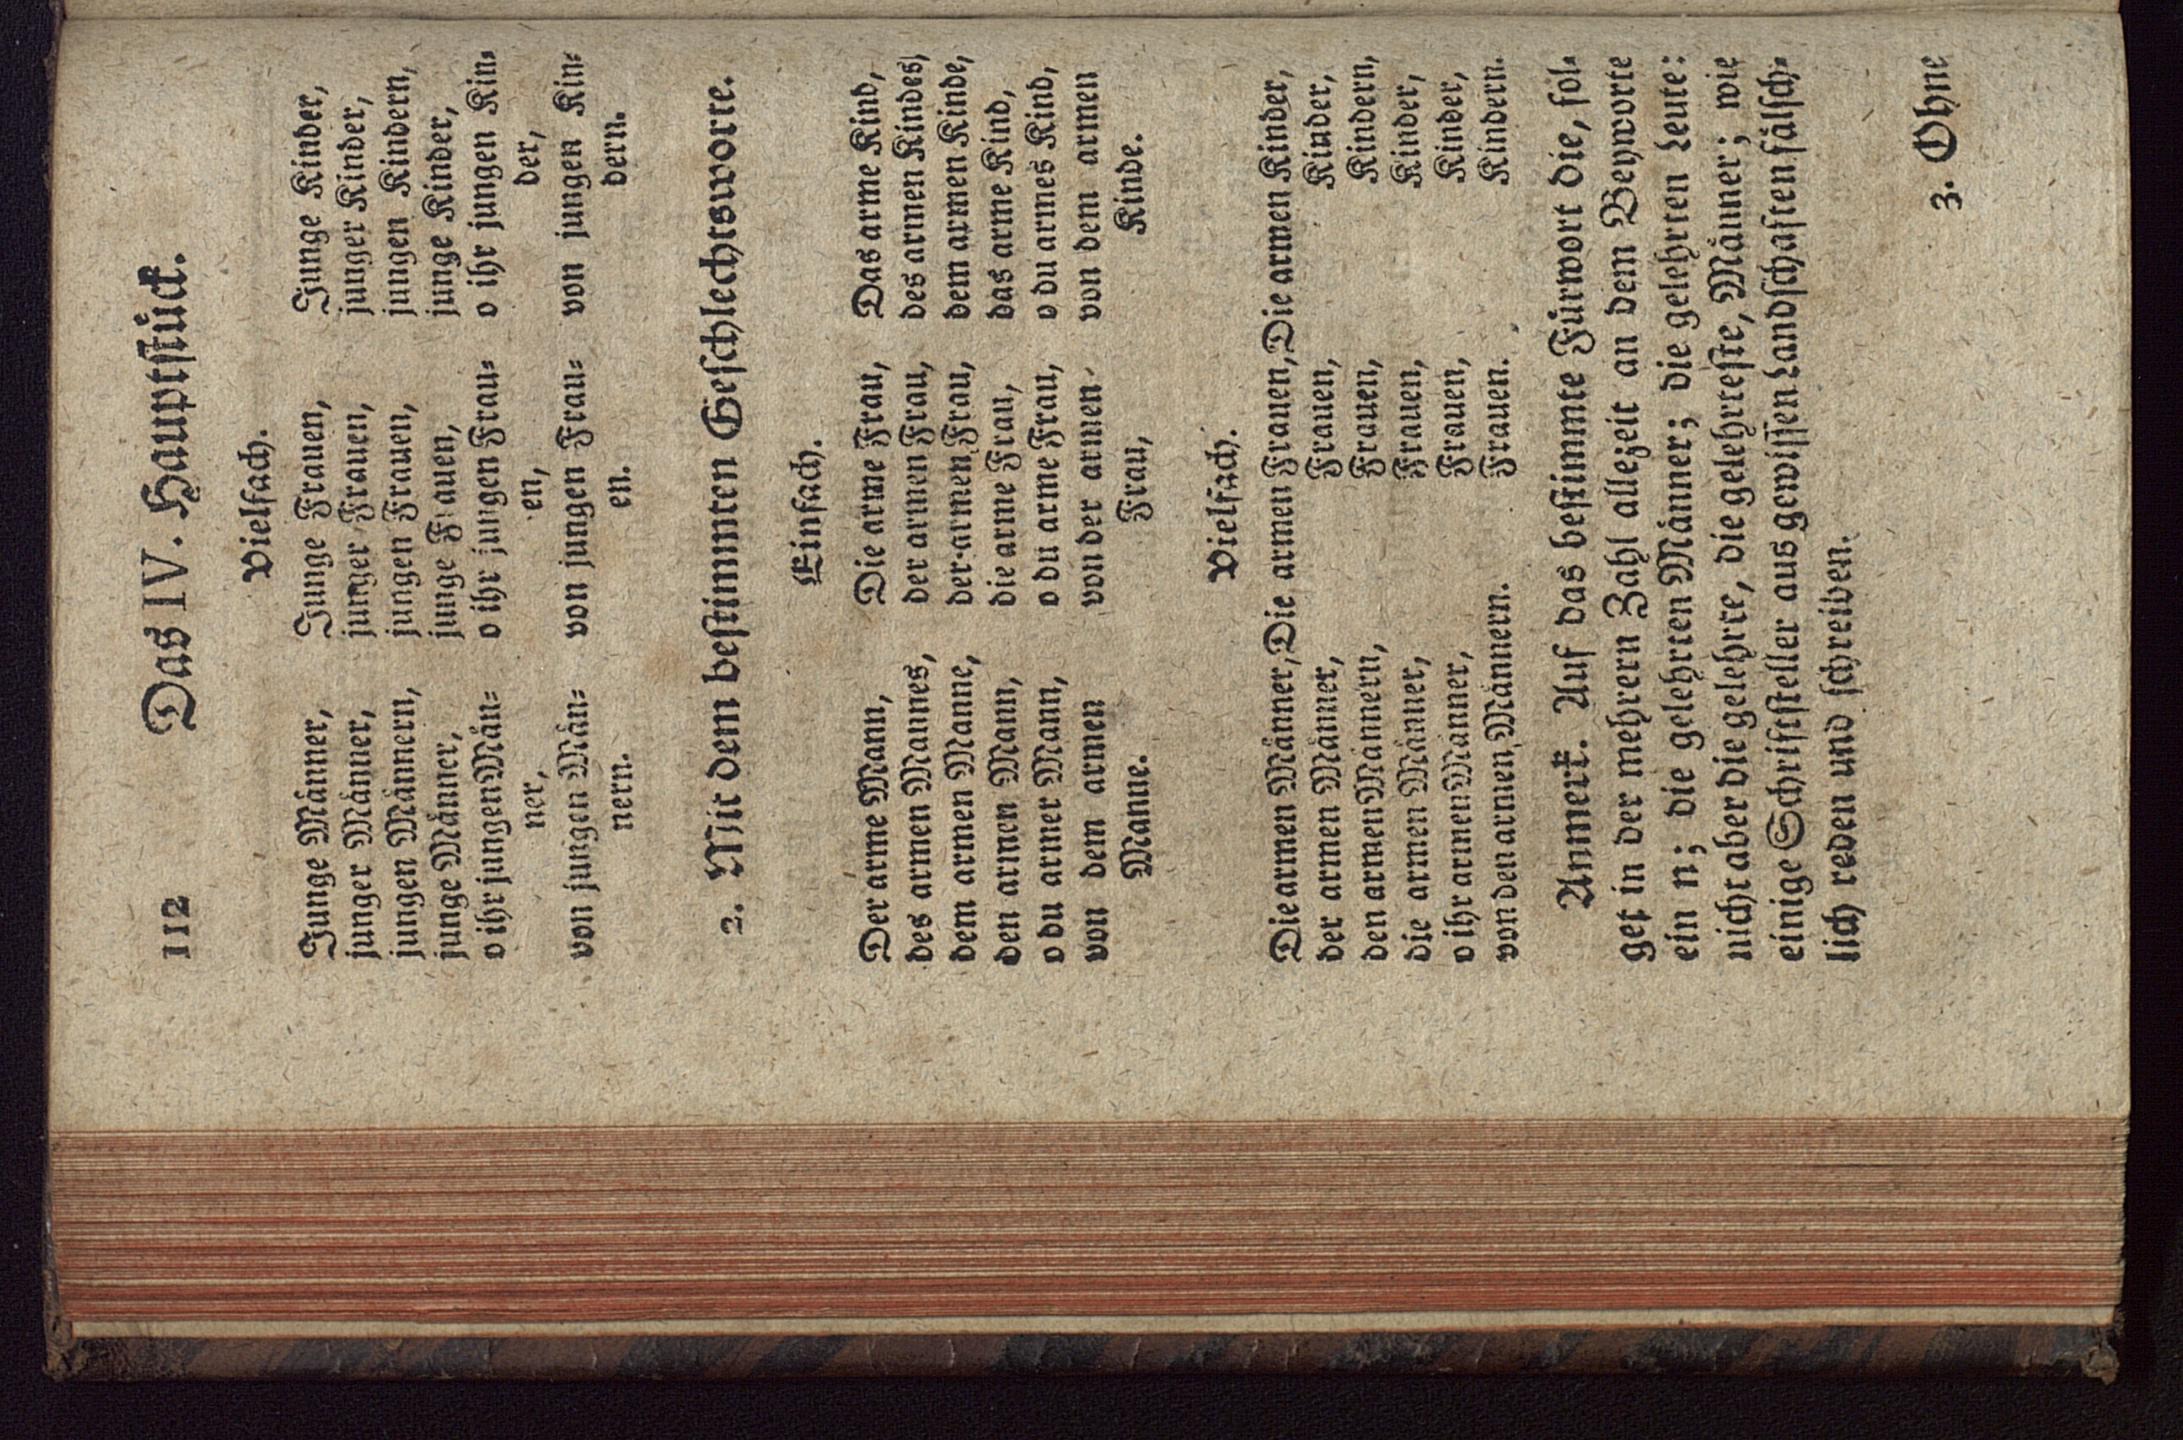 112 Das IV. Hauptstück.
Vielfach.
Junge Männer, Junge Frauen, Junge Kinder,
junger Männer, junger Frauen, junger Kinder,
jungen Männern, jungen Frauen, jungen Kindern,
junge Männer, junge Frauen, junge Kinder,
o ihr jungen Män= o ihr jungen Frau= o ihr jungen Kin=
ner, en, der,
von jungen Män= von jungen Frau= von jungen Kin=
nern. en. dern.
2. Mit dem bestimmten Geschlechtsworte.
Einfach.
Der arme Mann, Die arme Frau, Das arme Kind,
des armen Mannes, der armen Frau, des armen Kindes,
dem armen Manne, der armen Frau, dem armen Kinde,
den armen Mann, die arme Frau, das arme Kind,
o du armer Mann, o du arme Frau, o du armes Kind,
von dem armen von der armen von dem armen
Manne. Frau, Kinde.
Vielfach.
Die armen Männer, Die armen Frauen, Die armen Kinder,
der armen Männer, Frauen, Kinder,
den armen Männern, Frauen, Kindern,
die armen Männer, Frauen, Kinder,
o ihr armen Männer, Frauen, Kinder,
von den armen Männern. Frauen. Kindern.
Anmerk. Auf das bestimmte Fürwort die, fol=
get in der mehrern Zahl allezeit an dem Beyworte
ein n; die gelehrten Männer; die gelehrten Leute:
nicht aber die gelehrte, die gelehrteste, Männer; wie
einige Schriftsteller aus gewissen Landschaften fälsch=
lich reden und schreiben.
3. Ohne